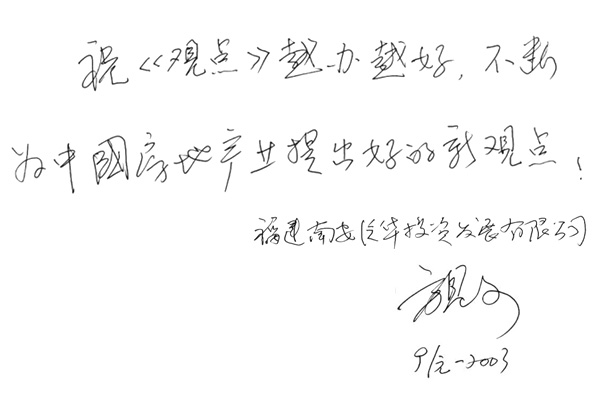 祝《观点》越办越好，不断
为中國房地产业提出好的新观点！
福建南安(泛华投资发展有限公司
9/元-2003